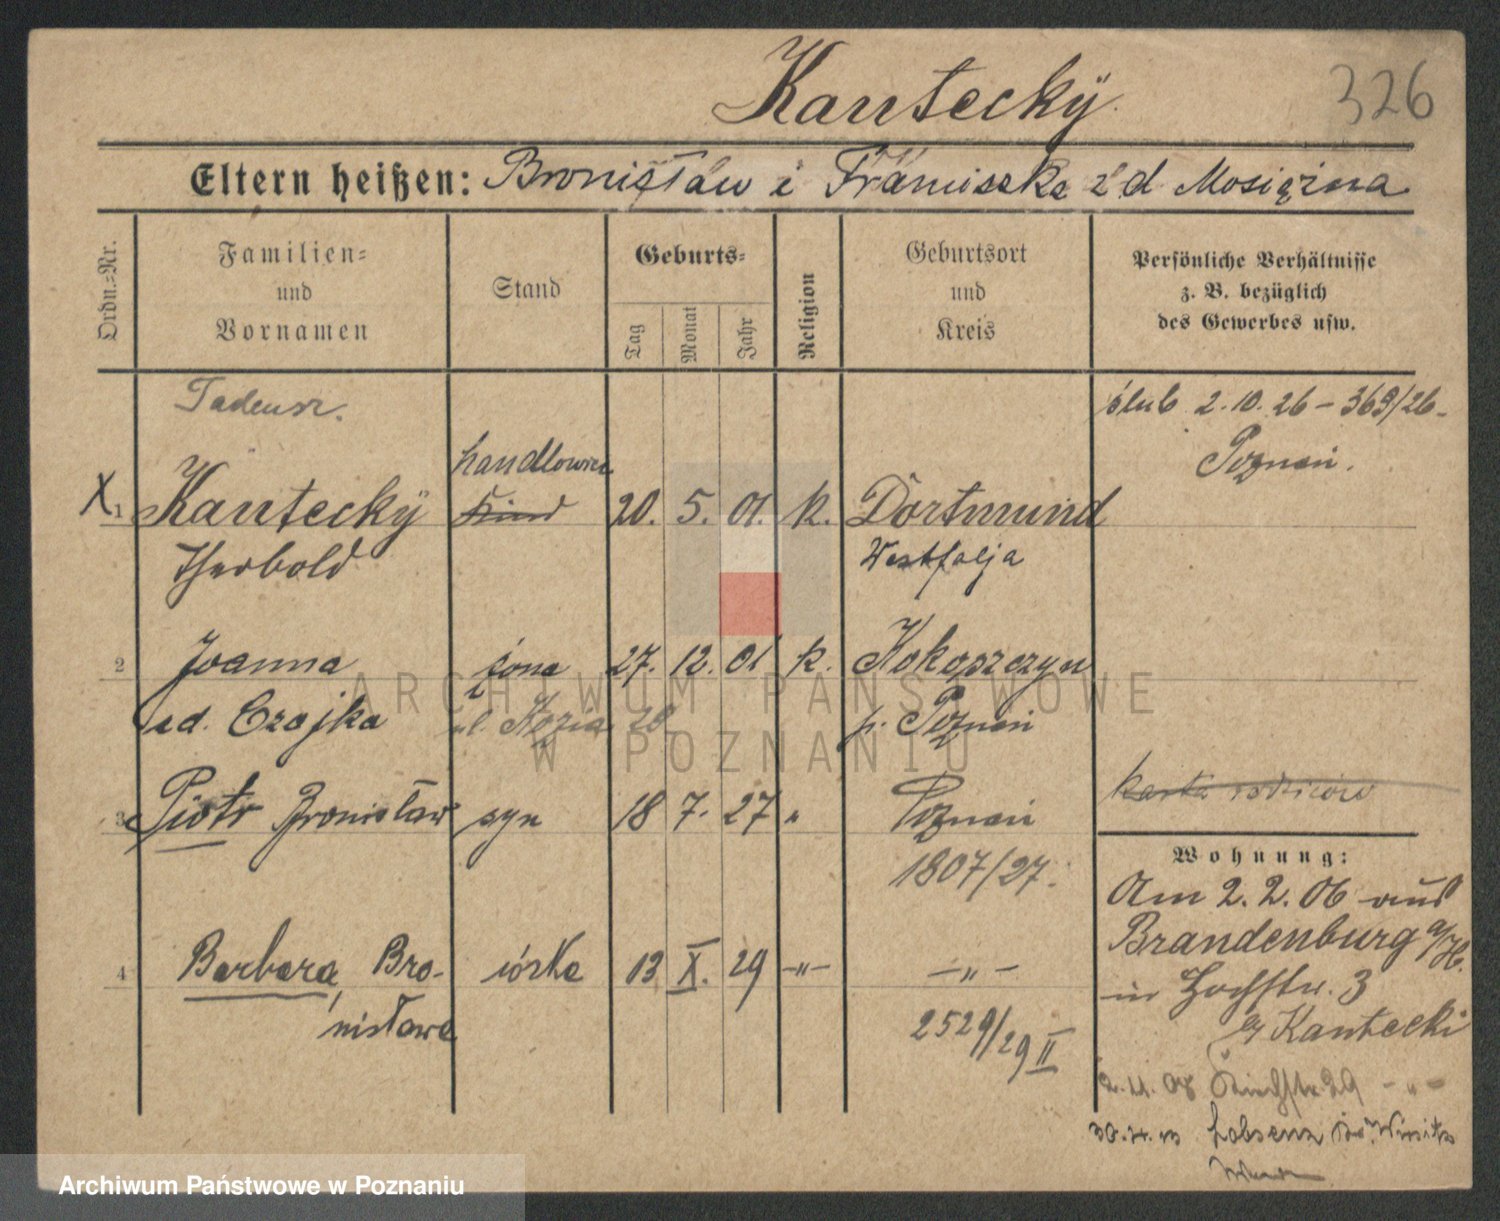 Kantecky
326
Eltern heißen: Bronisław i Franciszka z d Mosiężna
Ordn.=Nr.
Familien=
und
Vornamen
Stand
Geburts=
Tag
Monat
Jahr
Religion
Geburtsort
und
Kreis
Persönliche Verhältnisse
z. B. bezüglich
des Gewerbes usw.
Tadeusz.
ślub 2.10.26 - 369/26 -
Poznań.
handlowiec
X 1 Kantecky Kind 20. 5. 01. k. Dortmund
Westfalja
2 Joanna żona 27. 12. 01 k. Kokoszczyn
zd. Czajka ul. Kozia 28 p. Poznań
3 Piotr Bronisław syn 18 7. 27 " Poznań
karta rodziców
1807/27.
Wohnung:
4 Barbara, Bro- córka 13 X. 29 -"- -"-
nisława
2529/29 II
Am 2. 2. 06 aus
Brandenburg a/H.
in Hochstr. 3
Kantecki
08 29 - " -
Lobsens Wirsitz
ARCHIWUM PAŃSTWOWE
W POZNANIU
Archiwum Państwowe w Poznaniu